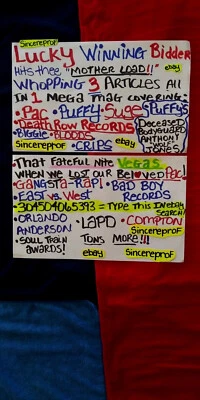 Sincereprof
Lucky Winning Bidder
Hits thee, "MOTHER LOAD!!" ebay
WHOPPING 3 ARTICLES All
IN 1 Mega Mag COVERING:
• Pac • Puffy • Suge • Puffy's
• Death Row Records Deceased
• Biggie • Bloods Bodyguard
Sincereprof • CRIPS ebay ANTHONY
"Wolf" Jones
That Fateful Nite Vegas
WHEN WE LOST OUR Beloved Pac!
• GANGSTA-RAP! • BAD BOY
• East vs West RECORDS
• 304504065393 = Type This IN ebay SEARCH
• ORLANDO ANDERSON • LAPD • COMPTON
Sincereprof
• SOUL TRAIN AWARDS! TONS MORE!!!
ebay Sincereprof